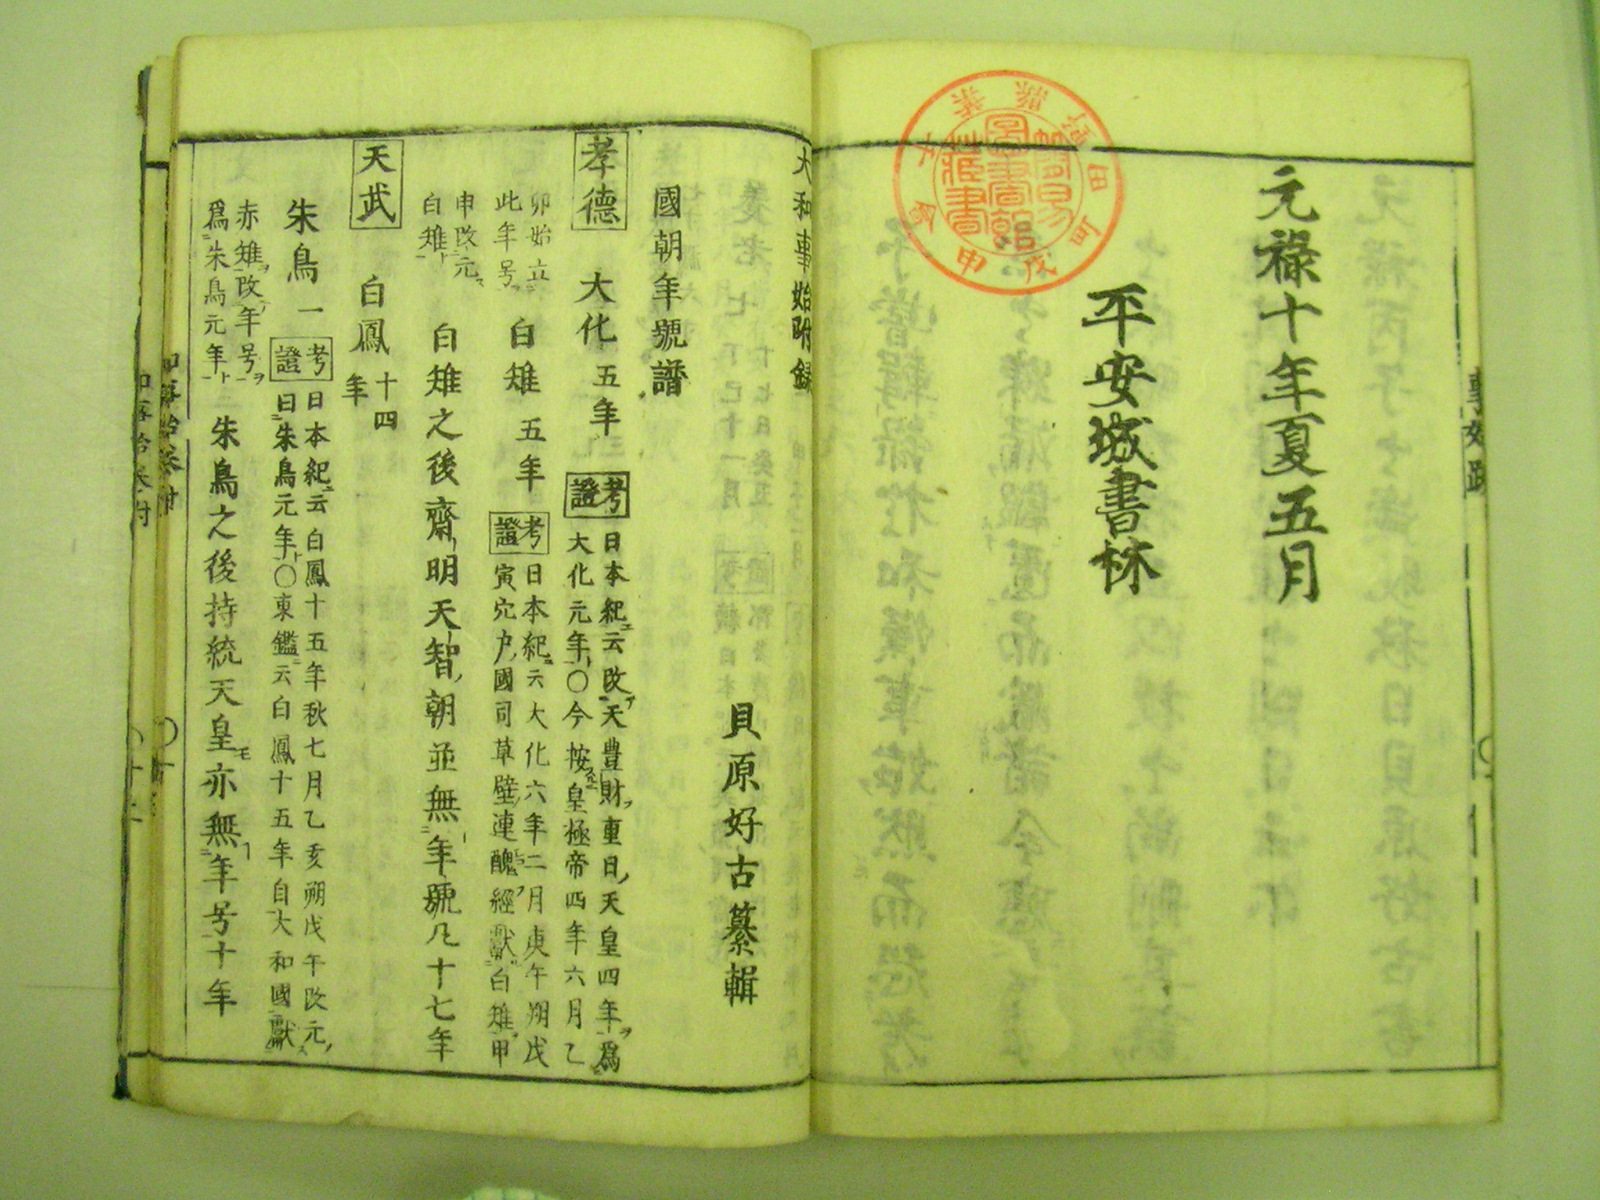 元祿十年夏五月
平安城書林
大和事始附録
貝原好古纂輯
國朝年號譜
孝德 大化五年 考證 日本紀云改天豊財重日天皇四年爲
大化元年〇今按皇極帝四年六月乙
卯始立
此年号
白雉五年 考證 日本紀云大化六年二月庚午朔戊
寅穴戸國司草壁連醜經獻白雉甲
申改元
白雉
白雉之後齋明天智朝並無年號凡十七年
天武 白鳳十四年
朱鳥一 考證 日本紀云白鳳十五年秋七月乙亥朔戊午改元
曰朱鳥元年〇東鑑云白鳳十五年自大和國獻
赤雉改年号
爲朱鳥元年
朱鳥之後持統天皇亦無年号十年